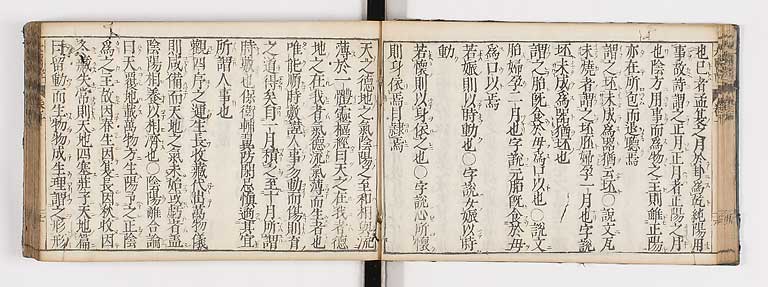 也巳者孟夏之月於卦爲乾純陽用
事故詩謂之正月正月者正陽之月
也陰方用事而爲物之主則雖正陽
亦在所包而退聽焉
謂之坯未成爲器猶云坏○說文瓦
未燒者謂之坏胚婦孕一月也字說
坯未成爲器猶坯也
謂之胎旣食於母爲口以也○說文
胎婦孕一月也字說元胎旣食於母
爲口以焉
若娠則以時動也○字說女娠以時
動
若懷則以身依之也○字說心所懷
則身依焉目隸焉
天之德地之氣陰陽之至和相與流
薄於一體靈樞經曰天之在我者德
地之在我者氣德流氣薄而生者也
唯能順時數謹人事勿動而傷則育
之道得矣自一月積之至十月所謂
時數也保衛輔翼防閑忌愼適其宜
所謂人事也
觀四序之運生長收藏代出萬物儀
則咸備而天地之氣未始或虧者蓋
陰陽相養以相濟也○陰陽離合論
曰天覆地載萬物方生陽予之正陰
爲之主故因春生因夏長因秋收因
冬藏失常則天地四塞莊子天地篇
曰留動而生物物成生理謂之形形